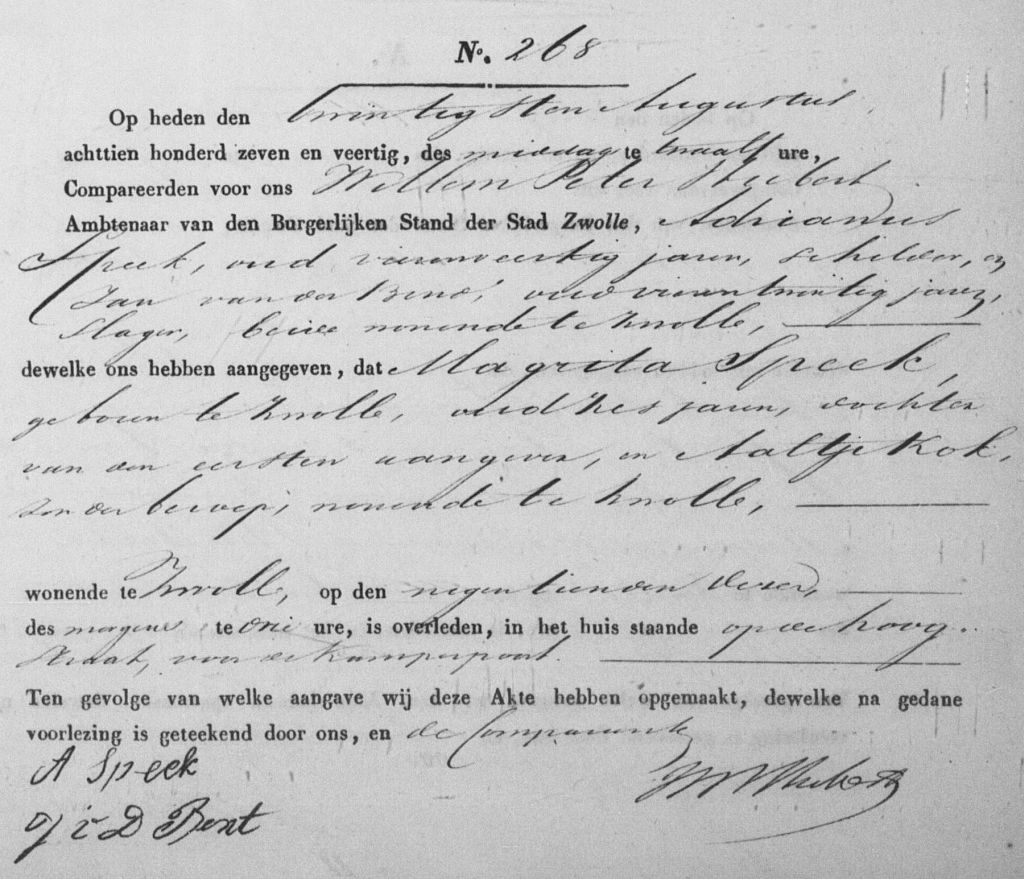 No. 268
Op heden den twintigsten Augustus
achttien honderd zeven en veertig, des middag te twaalf ure,
Compareerden voor ons Willem Peter Hubert
Ambtenaar van den Burgerlijken Stand der Stad Zwolle, Adrianus
Speek, oud jaren, schilder, en
Jan van der Bend, oud vierentwintig jaren,
Slager, beide wonende te Zwolle,
dewelke ons hebben aangegeven, dat Magrita Speek,
geboren te Zwolle, oud zes jaren, dochter
van den eersten aangever, en Aaltje Kok,
zonder beroep, wonende te Zwolle,
wonende te Zwolle, op den negentienden dezer,
des morgens te drie ure, is overleden, in het huis staande op de hoog
straat, voor de Kamperpoort.
Ten gevolge van welke aangave wij deze Akte hebben opgemaakt, dewelke na gedane
voorlezing is geteekend door ons, en de Comparanten
A Speek
J v D Bent